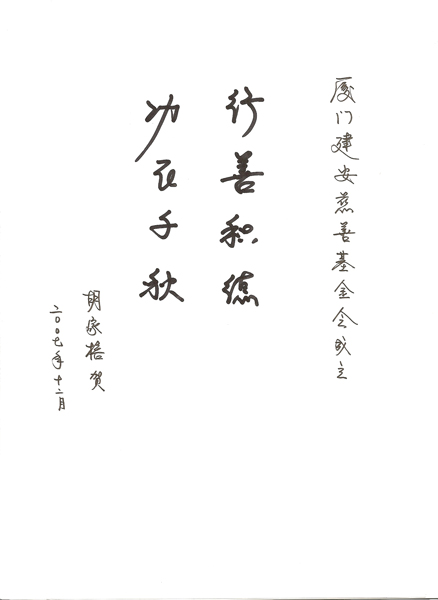 厦门建安慈善基金会成立
行善积德
功在千秋
胡家榕贺
二〇〇七年十二月